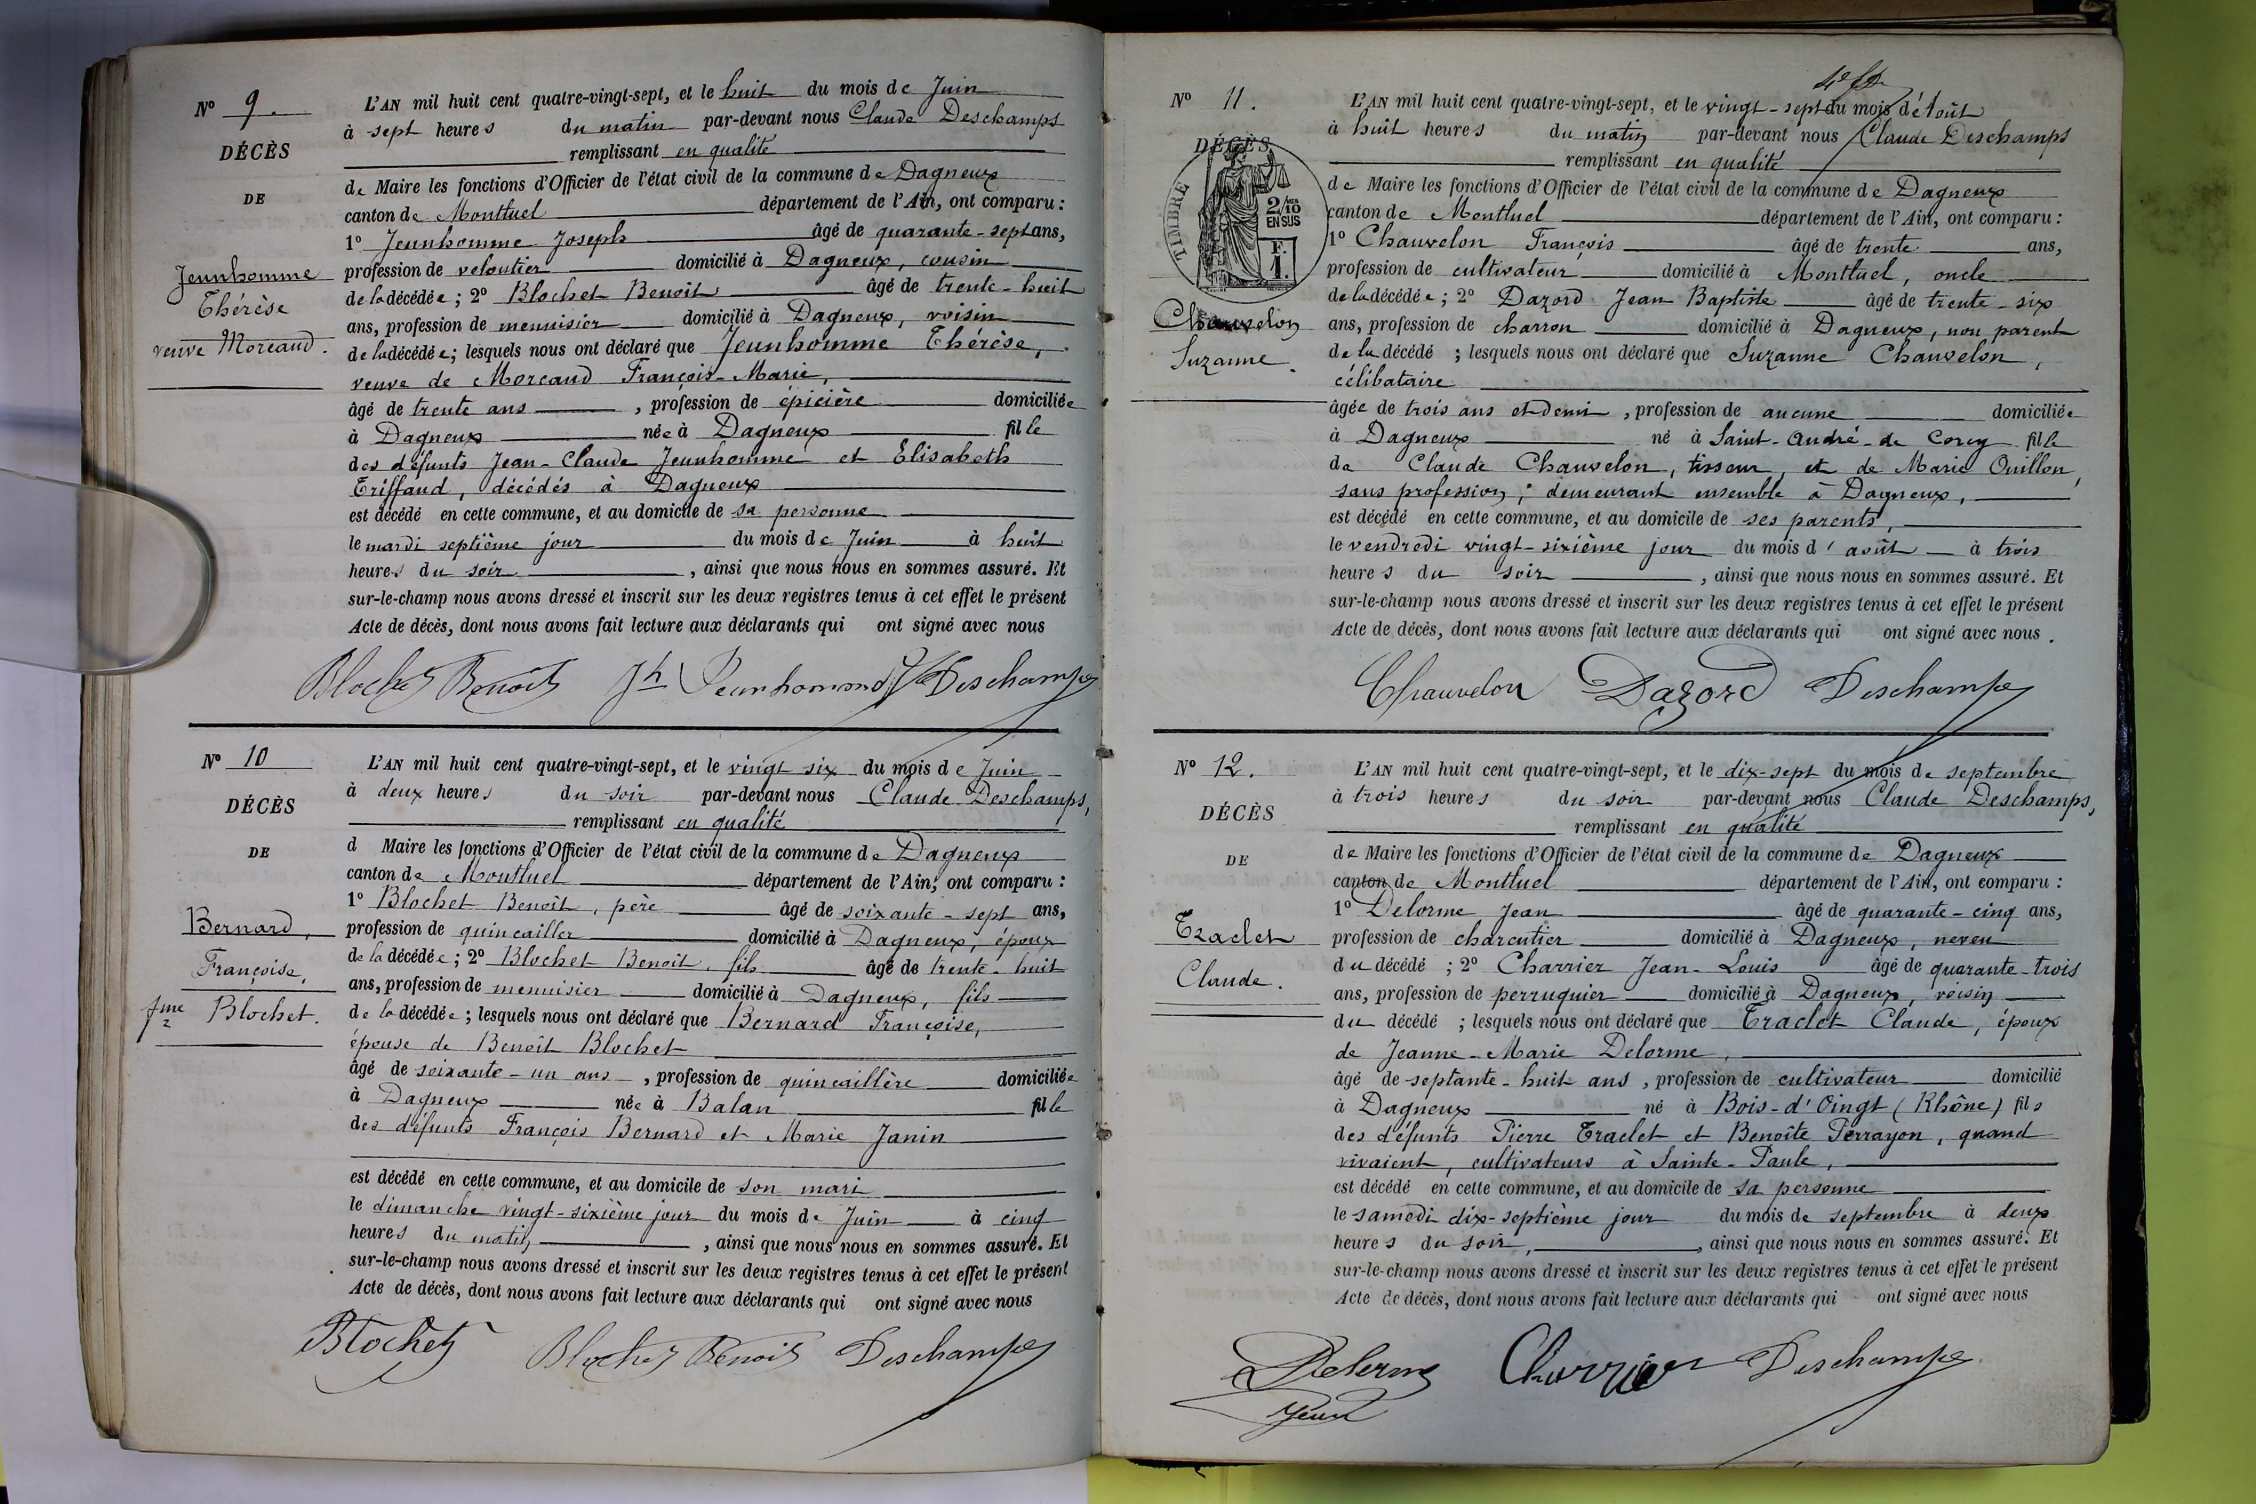 N° 9.
DÉCÈS
DE
Jeunhomme
Thérèse
veuve Moreaud.
L'AN mil huit cent quatre-vingt-sept, et le huit du mois de Juin
à sept heures du matin par-devant nous Claude Deschamps
remplissant en qualité
de Maire les fonctions d'Officier de l'état civil de la commune de Dagneux
canton de Montluel département de l'Ain, ont comparu :
1° Jeunhomme Joseph âgé de quarante-sept ans,
profession de veloutier domicilié à Dagneux, cousin
de la décédée ; 2° Blochet Benoît âgé de trente-huit
ans, profession de menuisier domicilié à Dagneux, voisin
de la décédée ; lesquels nous ont déclaré que Jeunhomme Thérèse,
veuve de Moreaud François-Marie,
âgé de trente ans , profession de épicière domiciliée
à Dagneux née à Dagneux fille
des défunts Jean-Claude Jeunhomme et Elisabeth
Triffaud, décédés à Dagneux
est décédé en cette commune, et au domicile de sa personne
le mardi septième jour du mois de Juin à huit
heures du soir , ainsi que nous nous en sommes assuré. Et
sur-le-champ nous avons dressé et inscrit sur les deux registres tenus à cet effet le présent
Acte de décès, dont nous avons fait lecture aux déclarants qui ont signé avec nous
Blochet Benoit Jh Jeunhomme Deschamps
N° 10
DÉCÈS
DE
Bernard,
Françoise,
fme Blochet.
L'AN mil huit cent quatre-vingt-sept, et le vingt six du mois de Juin
à deux heures du soir par-devant nous Claude Deschamps,
remplissant en qualité
d Maire les fonctions d'Officier de l'état civil de la commune de Dagneux
canton de Montluel département de l'Ain, ont comparu :
1° Blochet Benoît, père âgé de soixante-sept ans,
profession de quincailler domicilié à Dagneux, époux
de la décédée ; 2° Blochet Benoît, fils âgé de trente-huit
ans, profession de menuisier domicilié à Dagneux, fils
de la décédée ; lesquels nous ont déclaré que Bernard Françoise,
épouse de Benoît Blochet
âgé de soixante-un ans , profession de quincaillère domiciliée
à Dagneux née à Balan fille
des défunts François Bernard et Marie Janin
est décédé en cette commune, et au domicile de son mari
le dimanche vingt-sixième jour du mois de Juin à cinq
heures du matin , ainsi que nous nous en sommes assuré. Et
sur-le-champ nous avons dressé et inscrit sur les deux registres tenus à cet effet le présent
Acte de décès, dont nous avons fait lecture aux déclarants qui ont signé avec nous
Blochet Blochet Benoit Deschamps
N° 11.
DÉCÈS
TIMBRE
2/10
EN SUS
F.
1.
Chauvelon
Suzanne.
L'AN mil huit cent quatre-vingt-sept, et le vingt-sept du mois d'Août
à huit heures du matin par-devant nous Claude Deschamps
remplissant en qualité
de Maire les fonctions d'Officier de l'état civil de la commune de Dagneux
canton de Montluel département de l'Ain, ont comparu :
1° Chauvelon François âgé de trente ans,
profession de cultivateur domicilié à Montluel, oncle
de la décédée ; 2° Dazord Jean Baptiste âgé de trente-six
ans, profession de charron domicilié à Dagneux, non parent
de la décédé ; lesquels nous ont déclaré que Suzanne Chauvelon,
célibataire
âgée de trois ans et demi , profession de aucune domiciliée
à Dagneux né à Saint-André-de Corcy fille
de Claude Chauvelon, tisseur, et de Marie Ouillon,
sans profession ; demeurant ensemble à Dagneux,
est décédé en cette commune, et au domicile de ses parents,
le vendredi vingt-sixième jour du mois d'août à trois
heures du soir , ainsi que nous nous en sommes assuré. Et
sur-le-champ nous avons dressé et inscrit sur les deux registres tenus à cet effet le présent
Acte de décès, dont nous avons fait lecture aux déclarants qui ont signé avec nous.
Chauvelon Dazord Deschamps
N° 12.
DÉCÈS
DE
Traclet
Claude.
L'AN mil huit cent quatre-vingt-sept, et le dix-sept du mois de septembre
à trois heures du soir par-devant nous Claude Deschamps,
remplissant en qualité
de Maire les fonctions d'Officier de l'état civil de la commune de Dagneux
canton de Montluel département de l'Ain, ont comparu :
1° Delorme Jean âgé de quarante-cinq ans,
profession de charcutier domicilié à Dagneux, neveu
du décédé ; 2° Charrier Jean-Louis âgé de quarante-trois
ans, profession de perruquier domicilié à Dagneux, voisin
du décédé ; lesquels nous ont déclaré que Traclet Claude, époux
de Jeanne-Marie Delorme,
âgé de septante-huit ans , profession de cultivateur domicilié
à Dagneux né à Bois-d'Oingt (Rhône) fils
des défunts Pierre Traclet et Benoîte Perrayon, quand
vivaient, cultivateurs à Sainte-Paule,
est décédé en cette commune, et au domicile de sa personne
le samedi dix-septième jour du mois de septembre à deux
heures du soir, , ainsi que nous nous en sommes assuré. Et
sur-le-champ nous avons dressé et inscrit sur les deux registres tenus à cet effet le présent
Acte de décès, dont nous avons fait lecture aux déclarants qui ont signé avec nous
Delorme Charrier Deschamps
Jean